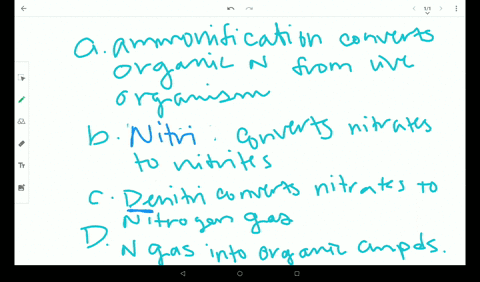 1/1
a. ammonification converts
organic N from live
organism
b. Nitri. converts nitrates
to nitrites
c. Denitri converts nitrates to
Nitrogen gas
D. N gas into organic cmpds.
Tr